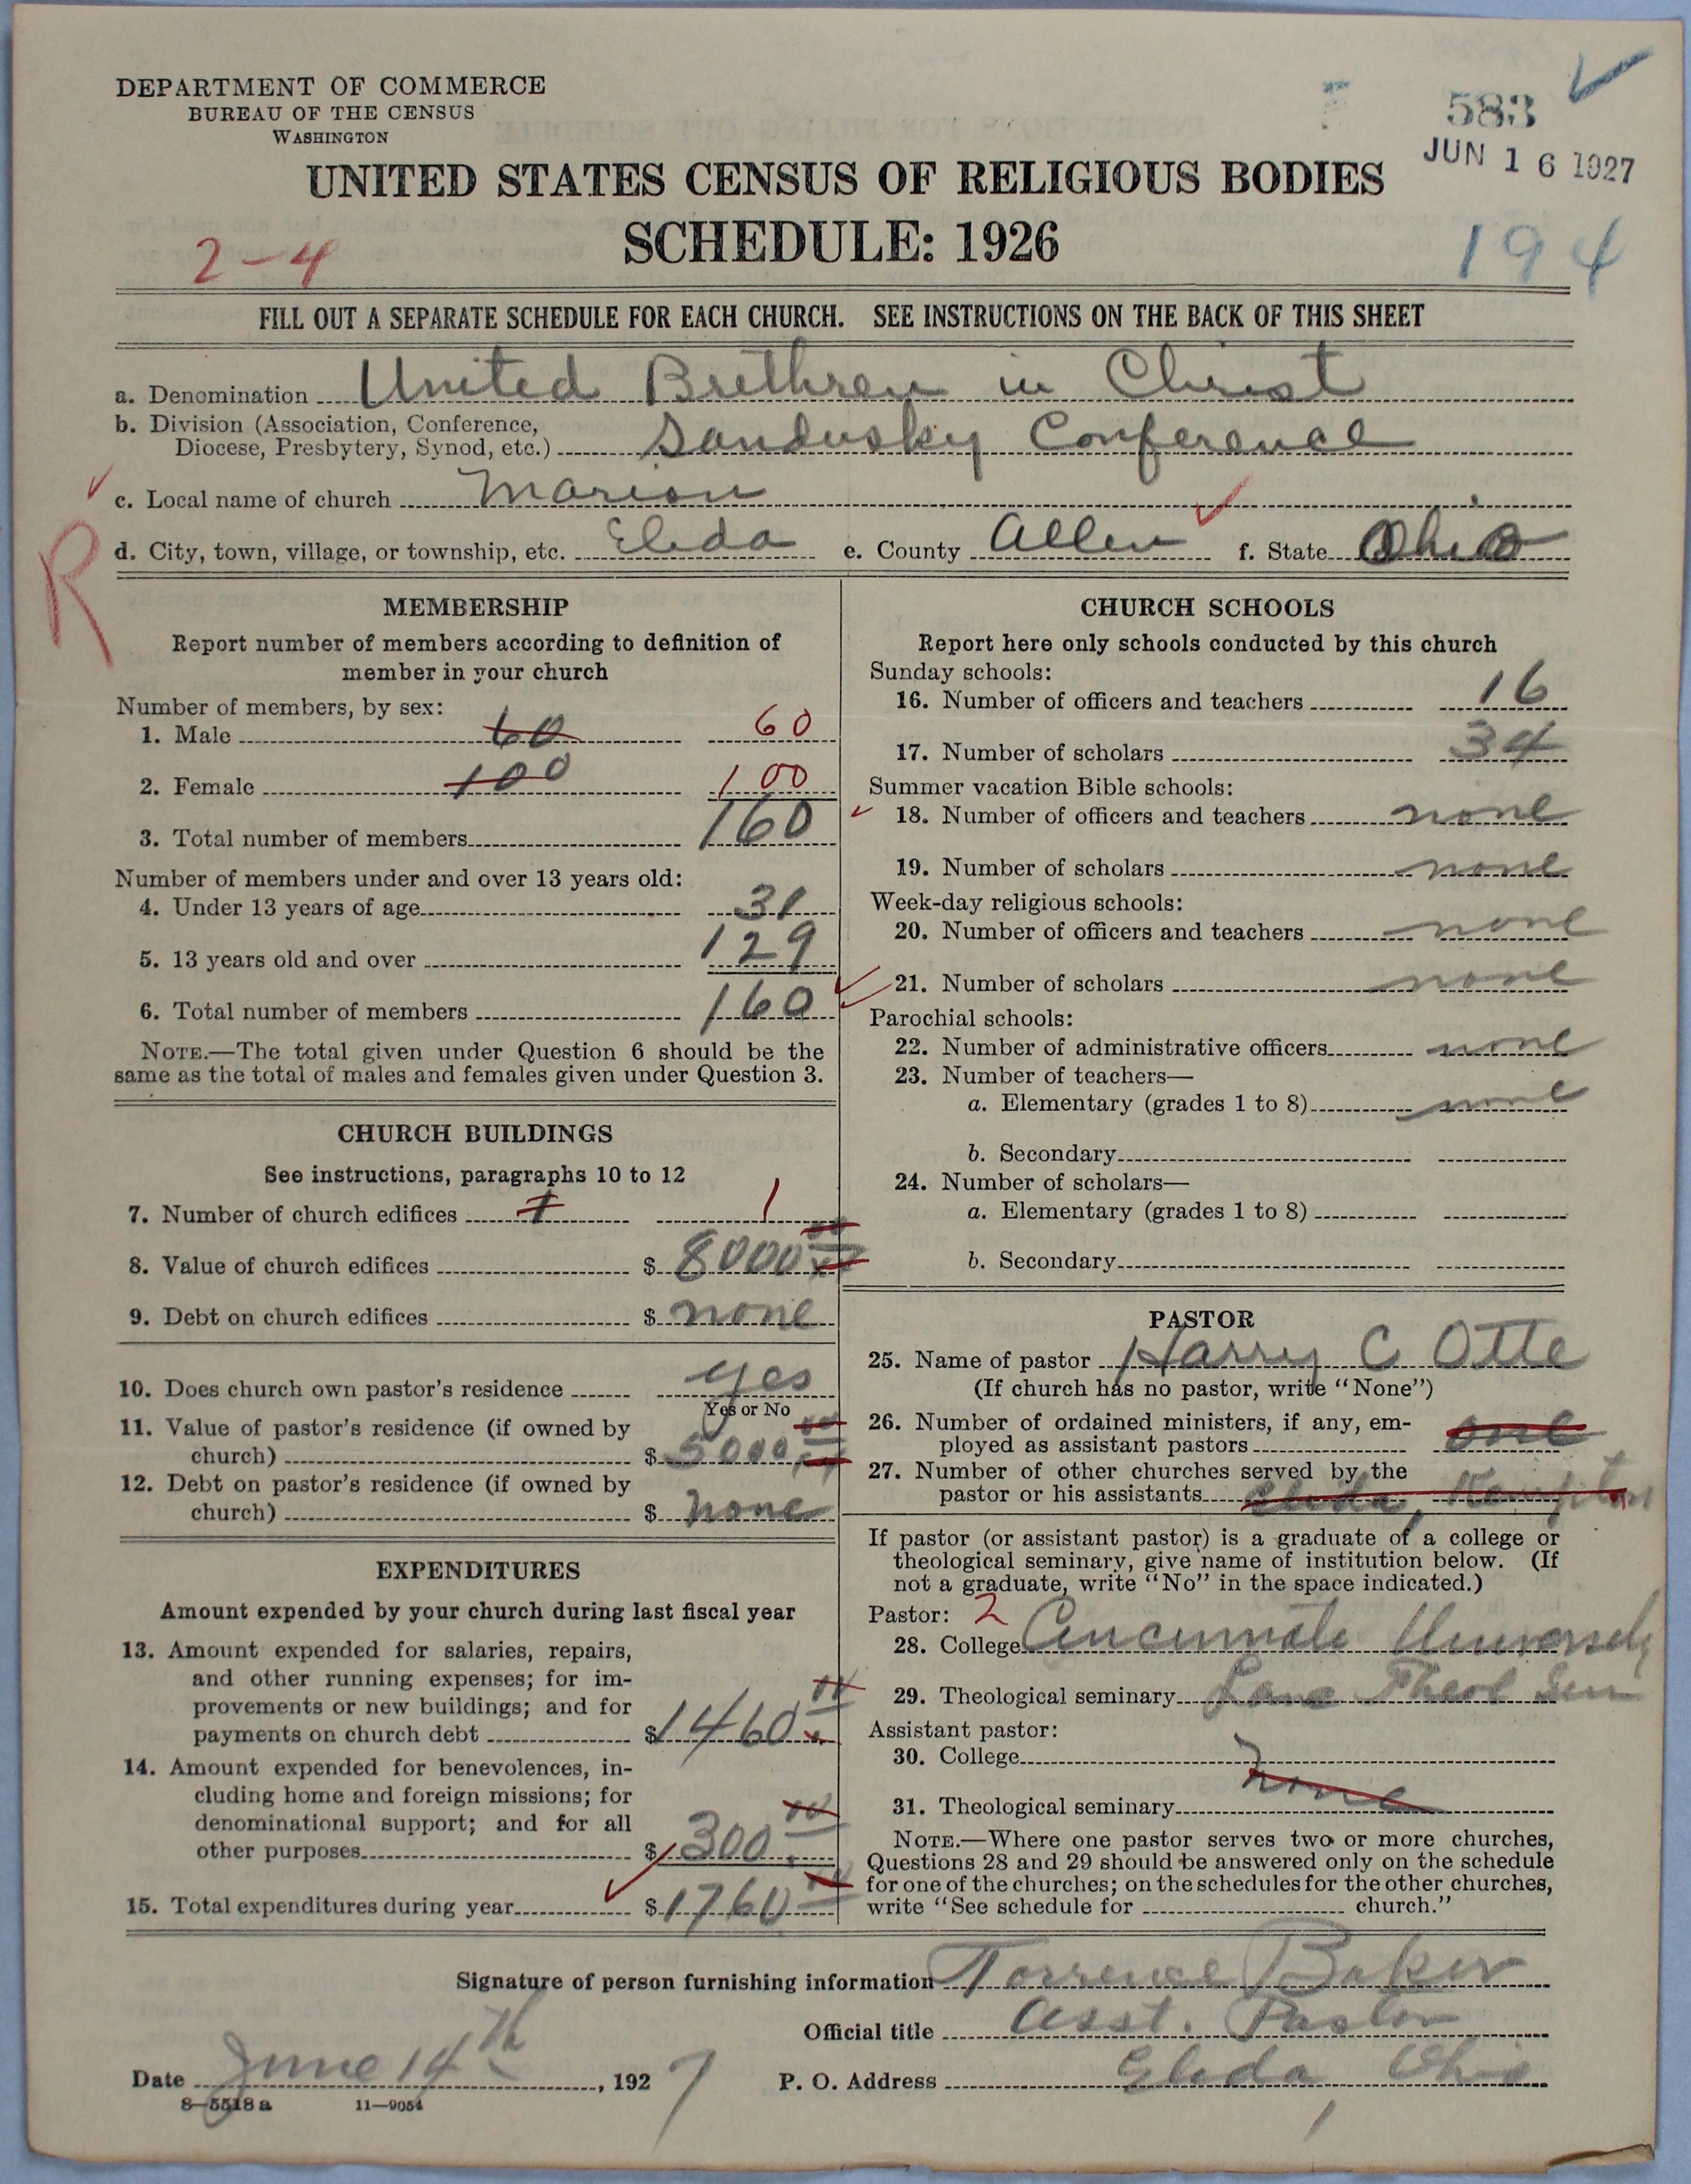 DEPARTMENT OF COMMERCE
BUREAU OF THE CENSUS
WASHINGTON
583
JUN 16 1927
UNITED STATES CENSUS OF RELIGIOUS BODIES
SCHEDULE: 1926
2-4
194
FILL OUT A SEPARATE SCHEDULE FOR EACH CHURCH. SEE INSTRUCTIONS ON THE BACK OF THIS SHEET
a. Denomination United Brethren in Christ
b. Division (Association, Conference,
Diocese, Presbytery, Synod, etc.) Sandusky Conference
c. Local name of church Marion
R
d. City, town, village, or township, etc. Elida e. County Allen f. State Ohio
MEMBERSHIP
Report number of members according to definition of
member in your church
Number of members, by sex:
1. Male 60 60
2. Female 100 100
3. Total number of members 160
Number of members under and over 13 years old:
4. Under 13 years of age 31
5. 13 years old and over 129
6. Total number of members 160
NOTE.—The total given under Question 6 should be the
same as the total of males and females given under Question 3.
CHURCH BUILDINGS
See instructions, paragraphs 10 to 12
7. Number of church edifices 1 1
8. Value of church edifices $ 8000
9. Debt on church edifices $ none
10. Does church own pastor's residence yes
Yes or No
11. Value of pastor's residence (if owned by
church) $ 5000
12. Debt on pastor's residence (if owned by
church) $ none
EXPENDITURES
Amount expended by your church during last fiscal year
13. Amount expended for salaries, repairs,
and other running expenses; for im-
provements or new buildings; and for
payments on church debt $ 1460
14. Amount expended for benevolences, in-
cluding home and foreign missions; for
denominational support; and for all
other purposes $ 300
15. Total expenditures during year $ 1760
CHURCH SCHOOLS
Report here only schools conducted by this church
Sunday schools:
16. Number of officers and teachers 16
17. Number of scholars 34
Summer vacation Bible schools:
18. Number of officers and teachers none
19. Number of scholars none
Week-day religious schools:
20. Number of officers and teachers none
21. Number of scholars none
Parochial schools:
22. Number of administrative officers none
23. Number of teachers—
a. Elementary (grades 1 to 8) none
b. Secondary
24. Number of scholars—
a. Elementary (grades 1 to 8)
b. Secondary
PASTOR
25. Name of pastor Harry C Otte
(If church has no pastor, write "None")
26. Number of ordained ministers, if any, em-
ployed as assistant pastors one
27. Number of other churches served by the
pastor or his assistants Elida, Kempton
If pastor (or assistant pastor) is a graduate of a college or
theological seminary, give name of institution below. (If
not a graduate, write "No" in the space indicated.)
Pastor: 2
28. College Cincinnati University
29. Theological seminary Lane Theol Sem
Assistant pastor:
30. College
none
31. Theological seminary
NOTE.—Where one pastor serves two or more churches,
Questions 28 and 29 should be answered only on the schedule
for one of the churches; on the schedules for the other churches,
write "See schedule for church."
Signature of person furnishing information Torrence Baker
Official title Asst. Pastor
Date June 14th, 1927 P. O. Address Elida, Ohio
8—5518 a 11—9054